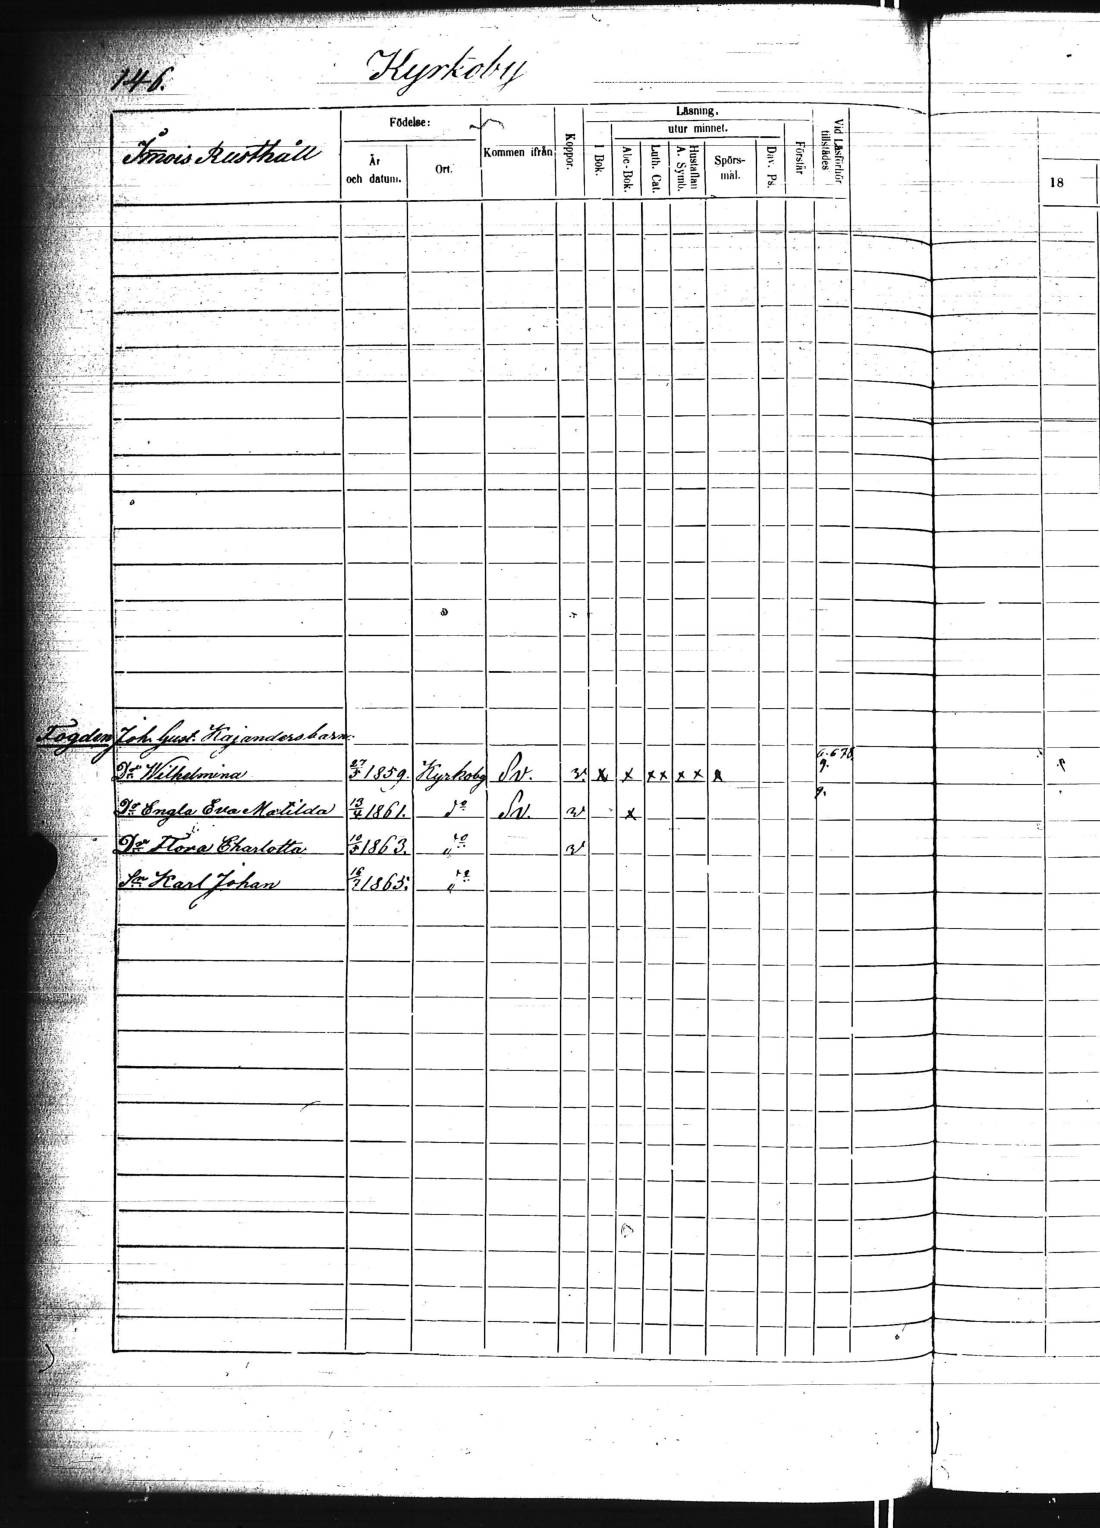 146. Kyrkoby
Åmois Rusthåll
Födelse:
År och datum.
Ort.
Kommen ifrån
Koppor.
Läsning,
I Bok.
utur minnet.
Abc-Bok.
Luth. Cat.
Hustaflan A. Symb.
Spörs-mål.
Dav. Ps.
Förstår
Vid Läsförhör tillstädes
18
Fogden Joh. Gust. Kajanders barn:
Dr Wilhelmina 27/5 1859. Kyrkoby Sv. v. x x xx x x x 6. 6 7 8. 9.
Dr Engla Eva Matilda 13/4 1861. do Sv. v x 9.
Dr Flora Charlotta 10/5 1863. " do v
Sn Karl Johan 16/7 1865. " do